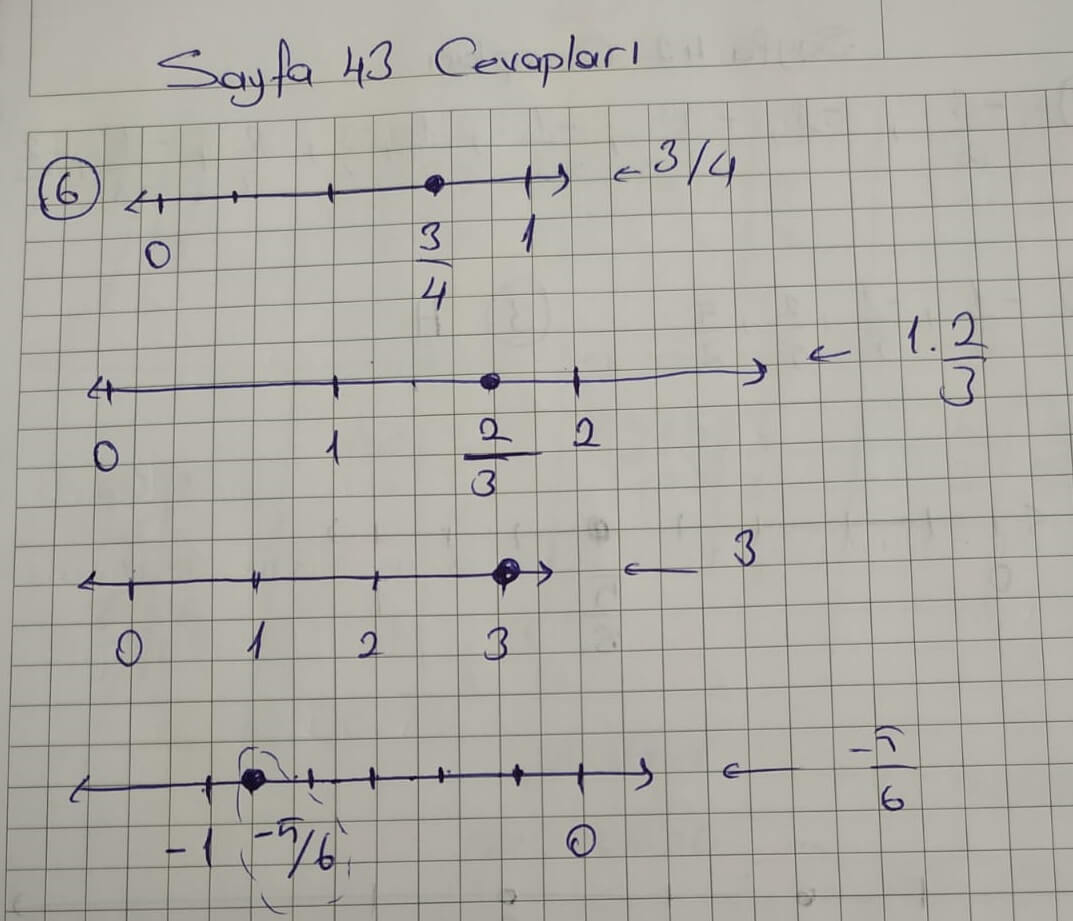 Sayfa 43 Cevapları
6
← 3/4
0 3/4 1
← 1.2/3
0 1 2/3 2
← 3
0 1 2 3
← -5/6
-1 -5/6 0